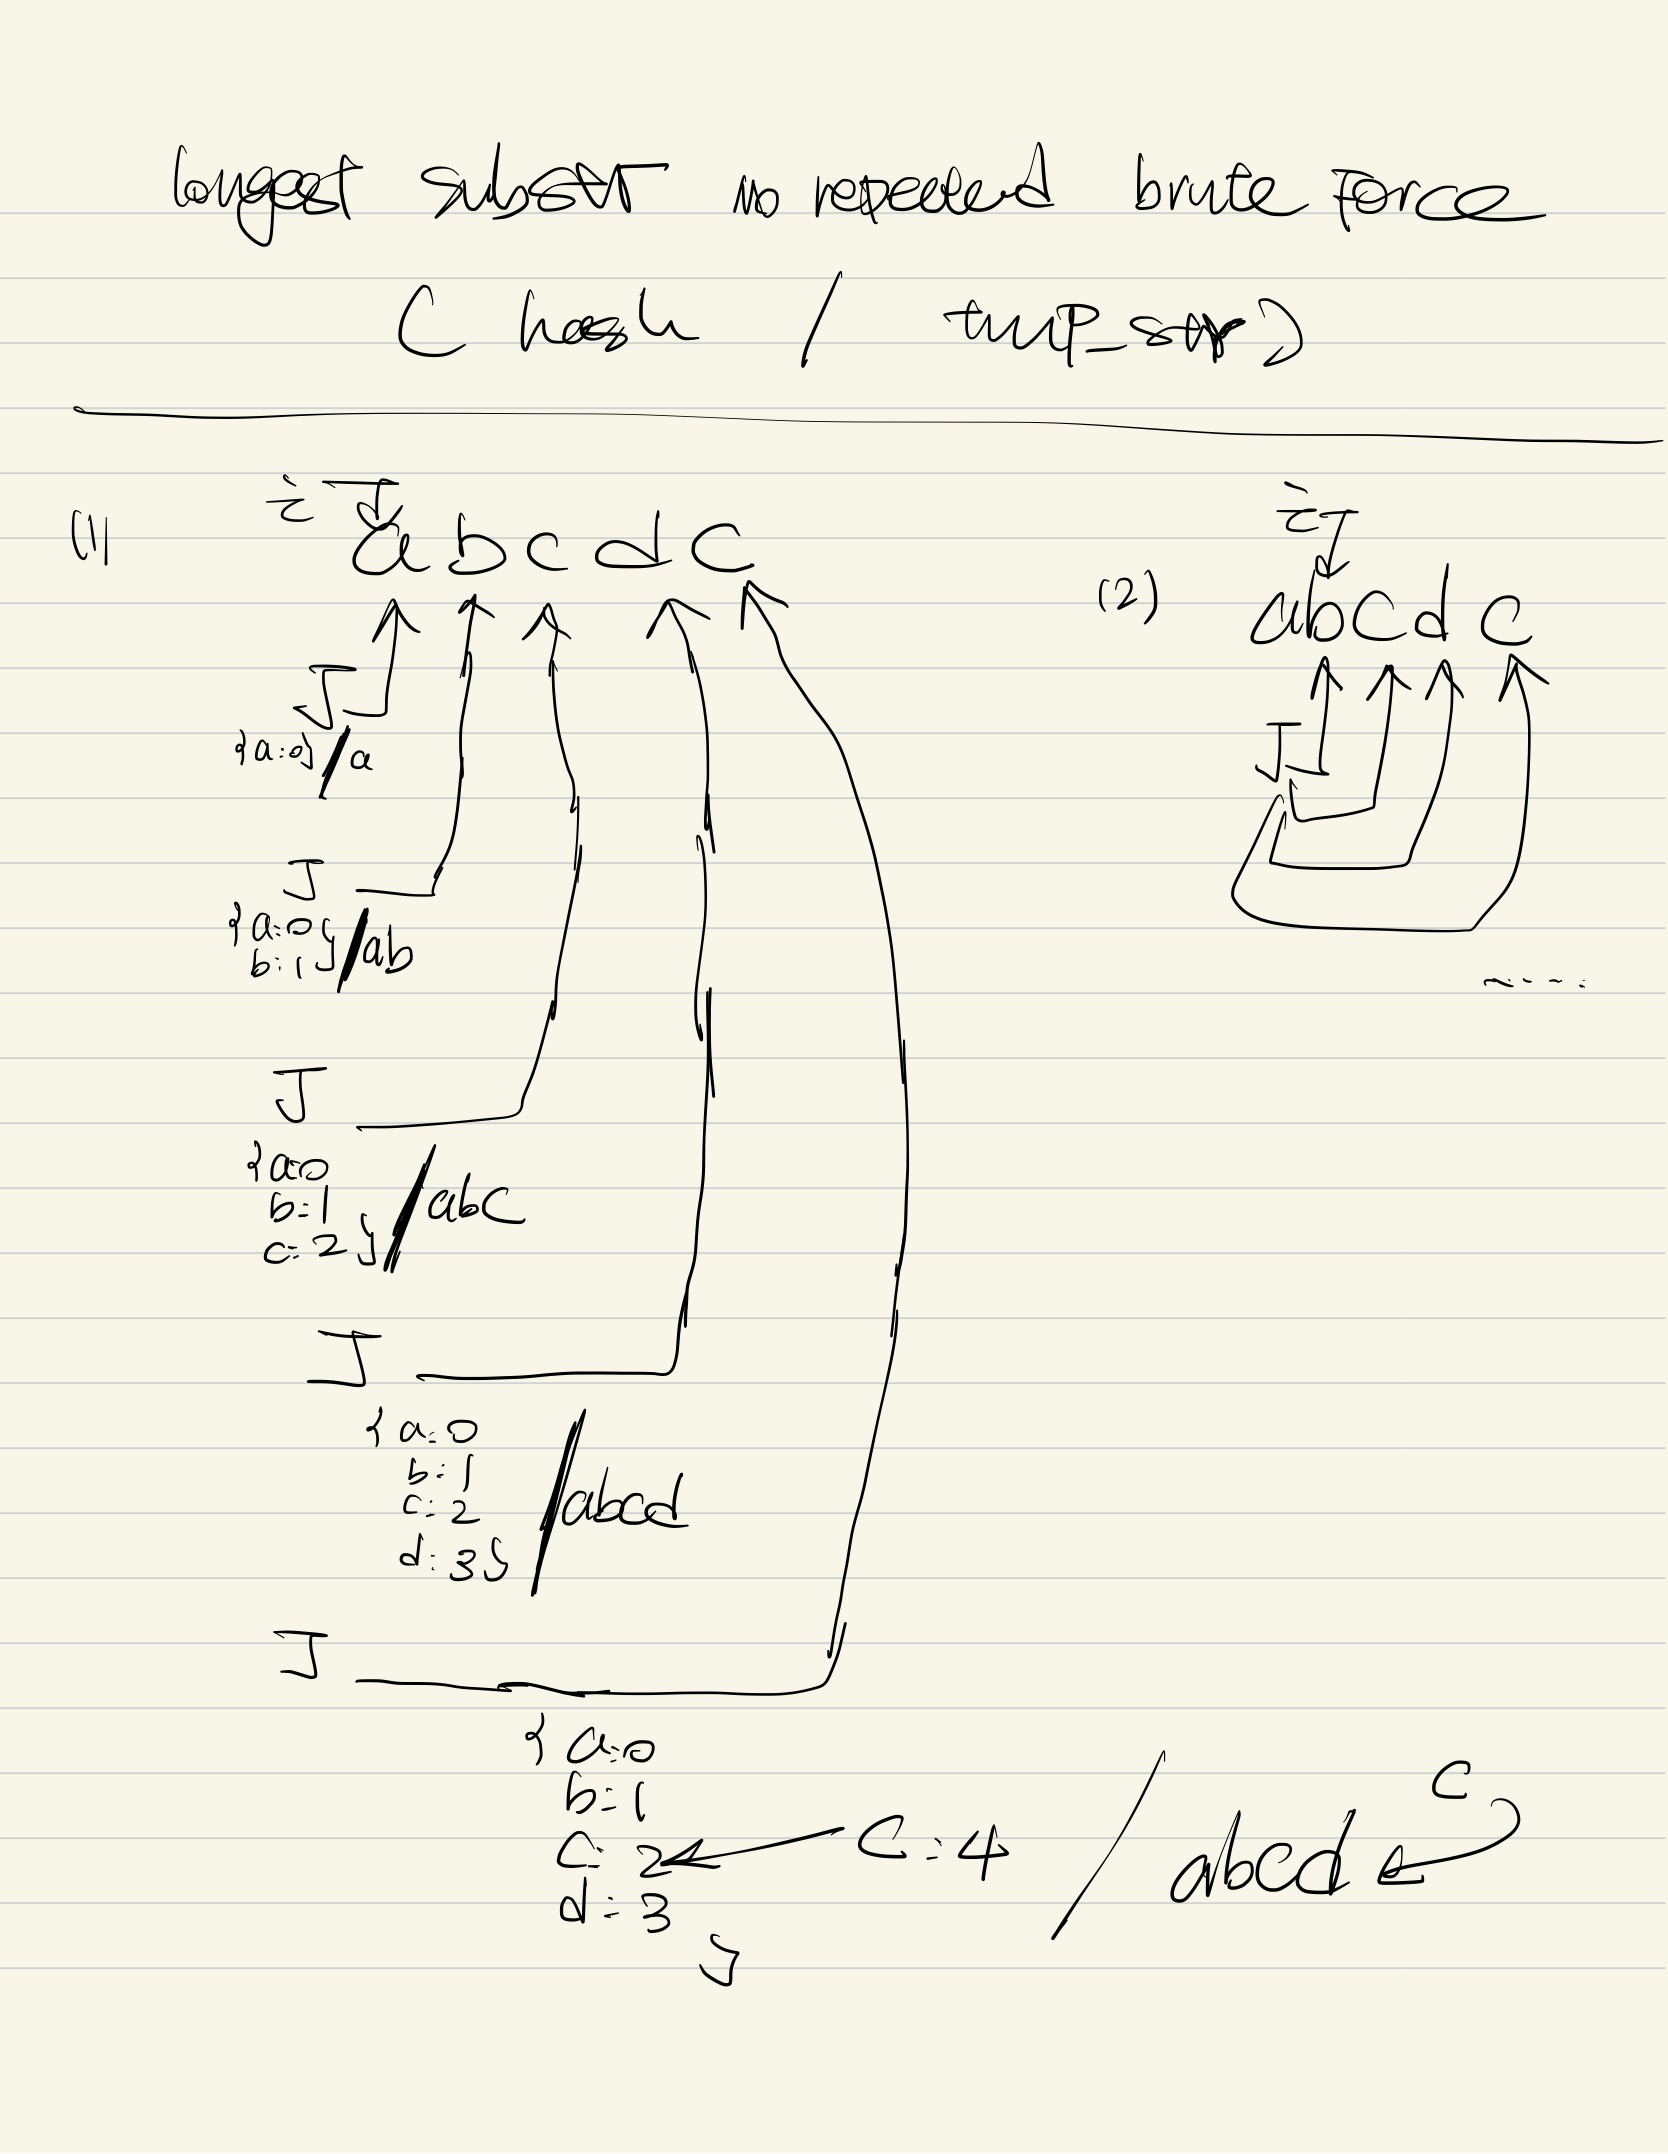 longest substr no repeated brute force
( hash / tmp_str )
(1)
i J
a b c d c
J
{a:0} / a
J
{a:0
b:1} / ab
J
{a:0
b:1
c:2} / abc
J
{a:0
b:1
c:2
d:3} / abcd
J
{a:0
b:1
c:2 c:4 / abcd c
d:3
}
(2)
i J
abcdc
J
.....